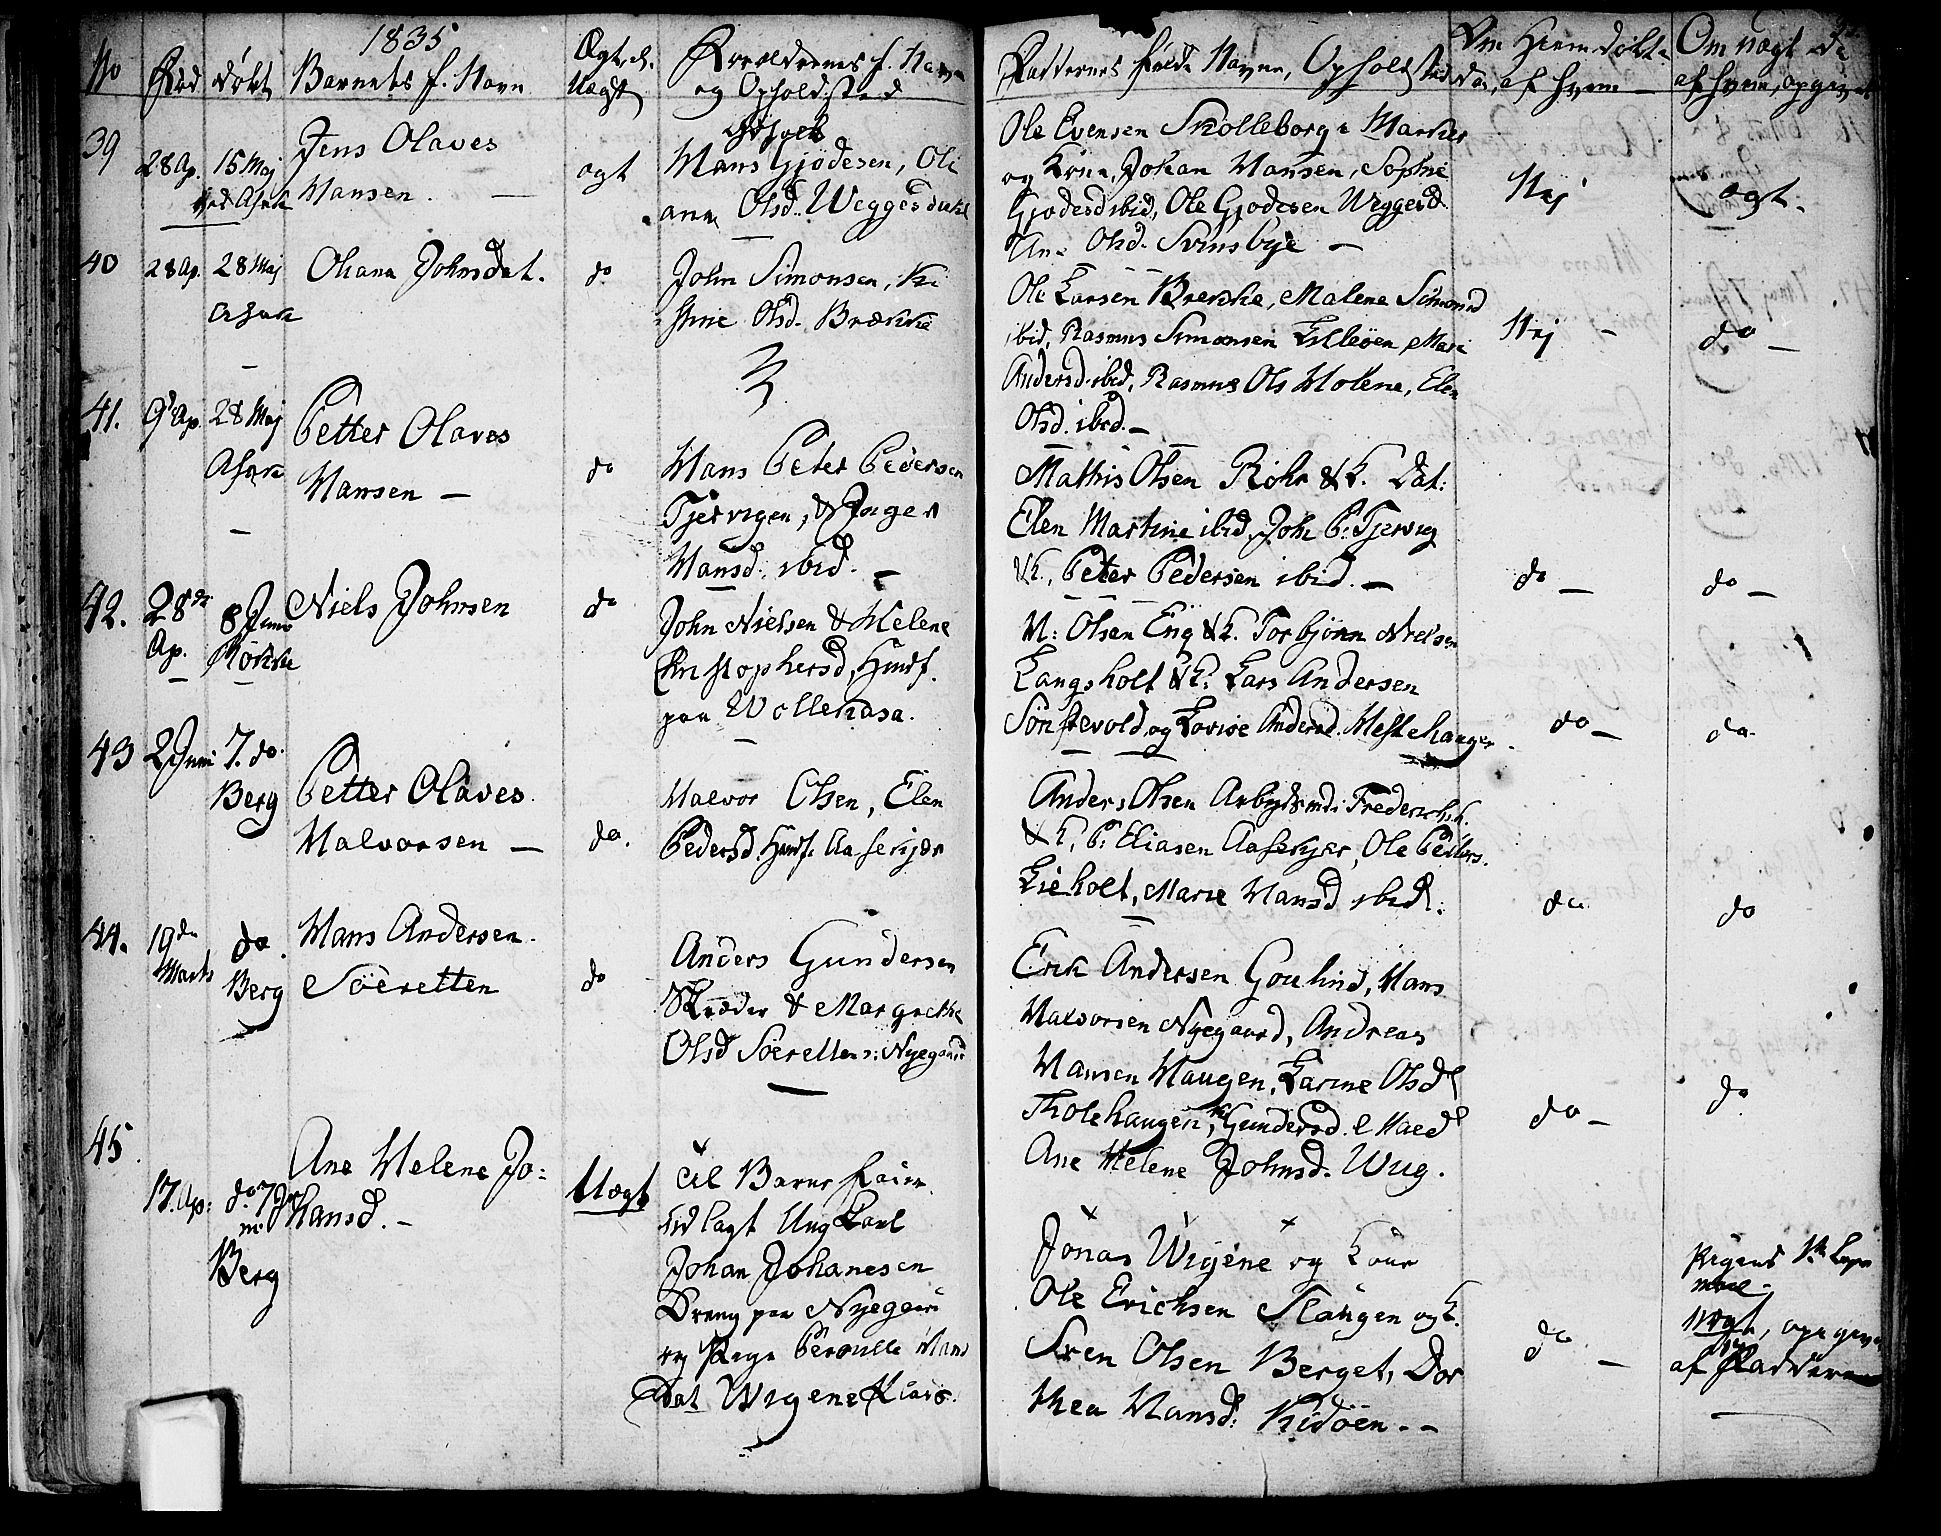 1835
No Fød døbt Barnets f. Navn Ægt. el. Uægt Forældrenes f. Navn og Opholdsted Faddernes fulde Navne, Opholdsted Om Hiemdøbt af hvem Om uægt af hvem, opgivet
39 28 Ap. 15 Maj Jens Olaves
Hansen. ægt
Hans Gjødesen, Oli
ane Olsd. Weggersdahl
Ole Evensen Skolleborg i Marker
og Kone, Johan Hansen, Sophie
Gjødesd ibid, Ole Gjødesen Weggersd
Ane Olsd. Svinsbye —
Nej
ægt.
40 28 Ap. 28 Maj
Asak
Oliana Johnsdat. do
John Simonsen, Kri
stine Olsd. Brække
Ole Larsen Brekke, Malene Simonsd
ibid, Rasmus Simonsen Lilleöen, Mari
Andersd. ibid, Rasmus Ols Holene, Elen
Olsd. ibid. —
Nej —
do —
41. 9de Ap. 28 Maj
Asak
Petter Olaves
Hansen —
do
Hans Peter Pedersen
Tjervigen, & Inger
Hansd. ibid. —
Mathis Olsen Röhr & K. Dat:
Elen Martine ibid, Joh P. Tjervig
& K., Peter Pedersen ibid. —
do —
do —
42. 28de
Ap. 8 Juni
Rokke
Niels Johnsen do
John Nielsen & Helene
Christophersd, Huusf.
paa Wollenasa.
N: Olsen Eng & K. Torbjörn Nielsen
Langsholt & K: Lars Andersen
Sönstevold, og Lovise Andersd. Hestehaugen
do —
do
43 2 Juni 7. do.
Berg
Petter Olaves
Halvorsen — do.
Halvor Olsen, Elen
Pedersd. Huusf. Aaserkjær
Anders Olsen Arbejdsmd: Frederichsh.
& K, P: Eliasen Aaserkjær, Ole Petters.
Lieholt, Marie Hansd ibid.
do
do
44. 19de
Marts do.
Berg
Hans Andersen
Söeretten do
Anders Gundersen
Skræder & Margrethe
Olsd Söeretten: Nyegaard
Erik Andersen Goulund, Hans
Halvorsen Nyegaard, Andreas
Hansen Haugen, Karine Olsd
Tholehaugen, Gundersd.
Ane Helene Johnsd. Wug.
do —
do
45 17. Ap: do 7 Ju
ni
Berg
Ane Helene Jo-
hansd. — Uægt
til Barne Fader
udlagt Ung Karl
Johan Johanesen
Dreng paa Nyegaard
og Pige Pernille Hans
Dat Wigene
Jonas Wigene og Kone
Ole Erichsen Slangen og K.
Sven Olsen Berget, Dor
thea Hansd: Kisöen. —
do —
Pigens
Uægt, opgivet
af Fadderne